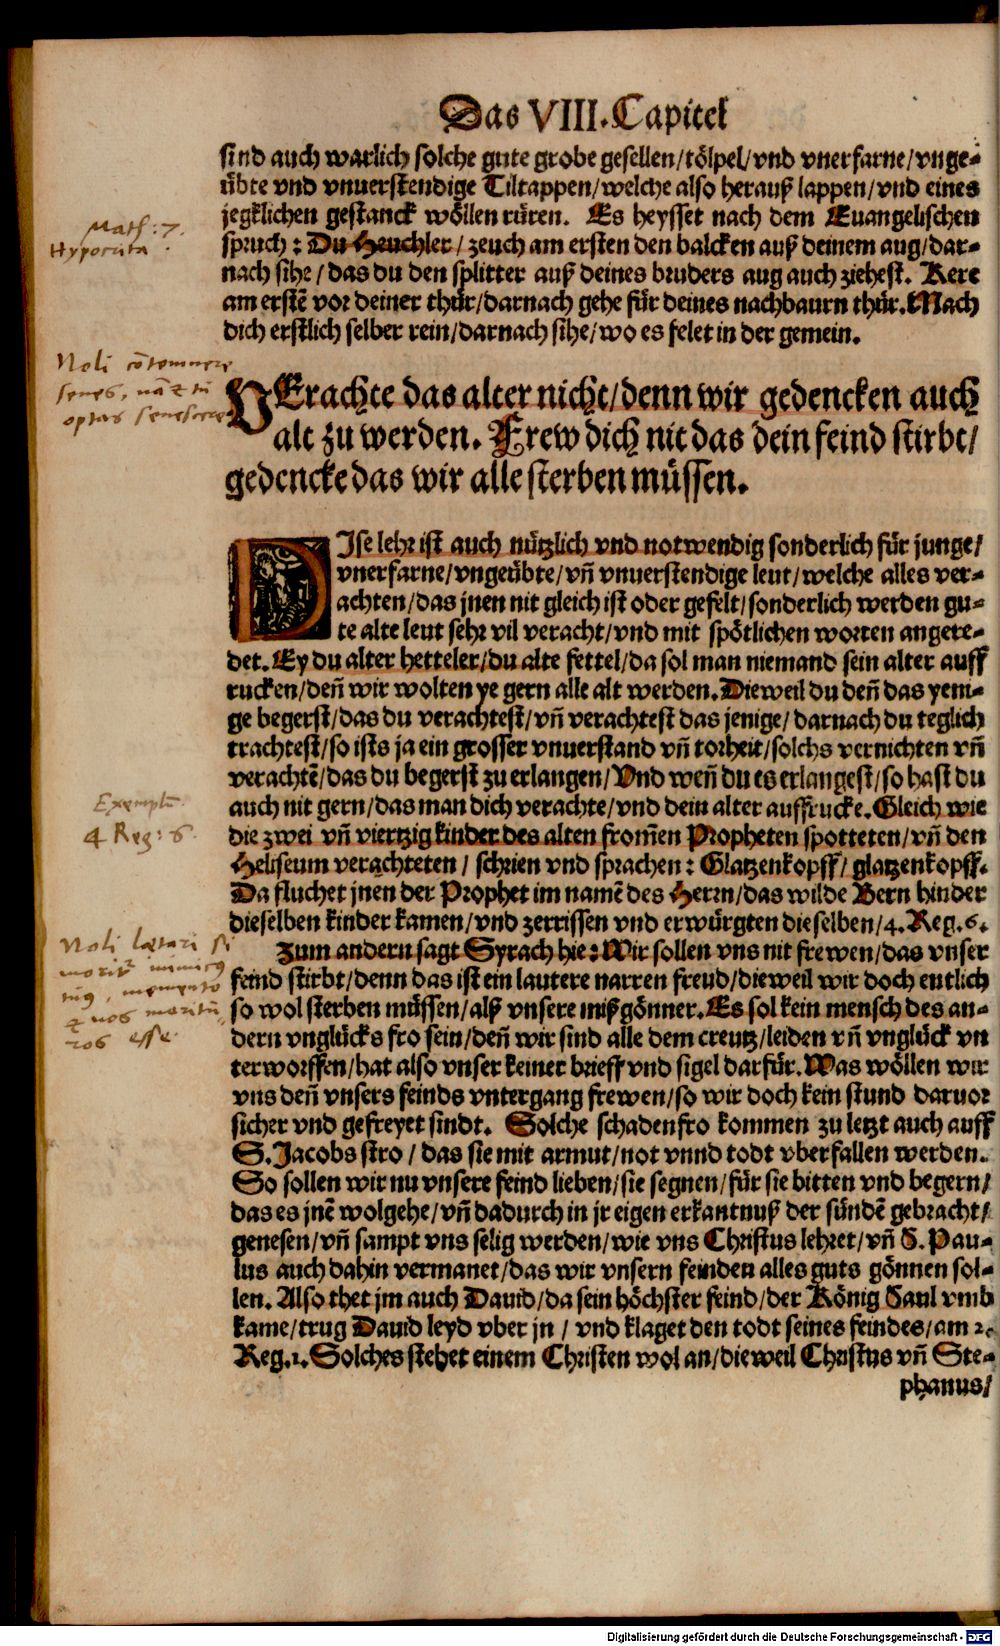 Das VIII. Capitel
sind auch warlich solche gute grobe gesellen/tölpel/vnd vnerfarne/vnge-
übte vnd vnuerstendige Tiltappen/welche also herauß lappen/vnd eines
jegklichen gestanck wöllen rüren. Es heysset nach dem Euangelischen
Math: 7.
Hypocrita.
spruch: Du Heuchler/zeuch am ersten den balcken auß deinem aug/dar-
nach sihe/das du den splitter auß deines bruders aug auch ziehest. Kere
am erstē vor deiner thür/darnach gehe für deines nachbaurn thür. Mach
dich erstlich selber rein/darnach sihe/wo es felet in der gemein.
Noli cōtemnere
senes, nā & tu
optas senescere
VErachte das alter nicht/denn wir gedencken auch
alt zu werden. Frew dich nit das dein feind stirbt/
gedencke das wir alle sterben müssen.
DIse lehr ist auch nützlich vnd notwendig sonderlich für junge/
vnerfarne/vngeübte/vn̄ vnuerstendige leut/welche alles ver-
achten/das jnen nit gleich ist oder gefelt/sonderlich werden gu-
te alte leut sehr vil veracht/vnd mit spötlichen worten angere-
det. Ey du alter hetteler/du alte fettel/da sol man niemand sein alter auff
rucken/den̄ wir wolten ye gern alle alt werden. Dieweil du den̄ das yeni-
ge begerst/das du verachtest/vn̄ verachtest das jenige/darnach du teglich
trachtest/so ists ja ein grosser vnuerstand vn̄ torheit/solchs vernichten vn̄
verachtē/das du begerst zu erlangen/Vnd wen̄ du es erlangest/so hast du
Exemplū.
4 Reg: 6.
auch nit gern/das man dich verachte/vnd dein alter auffrucke. Gleich wie
die zwei vn̄ viertzig kinder des alten from̄en Propheten spotteten/vn̄ den
Heliseum verachteten/schrien vnd sprachen: Glatzenkopff/glatzenkopff.
Da fluchet jnen der Prophet im namē des Herrn/das wilde Bern hinder
dieselben kinder kamen/vnd zerrissen vnd erwürgten dieselben/4. Reg. 6.
Noli lætari si
morit inimicus
tuus, memento
& nos moritu
ros esse.
Zum andern sagt Syrach hie: Wir sollen vns nit frewen/das vnser
feind stirbt/denn das ist ein lautere narren freud/dieweil wir doch entlich
so wol sterben müssen/alß vnsere mißgönner. Es sol kein mensch des an-
dern vnglücks fro sein/den̄ wir sind alle dem creutz/leiden vn̄ vnglück vn
terworffen/hat also vnser keiner brieff vnd sigel darfür. Was wöllen wir
vns den̄ vnsers feinds vntergang frewen/so wir doch kein stund daruor
sicher vnd gefreyet sindt. Solche schadenfro kommen zu letzt auch auff
S. Jacobs stro/das sie mit armut/not vnnd todt vberfallen werden.
So sollen wir nu vnsere feind lieben/sie segnen/für sie bitten vnd begern/
das es jnē wolgehe/vn̄ dadurch in jr eigen erkantnuß der sündē gebracht/
genesen/vn̄ sampt vns selig werden/wie vns Christus lehret/vn̄ S. Pau-
lus auch dahin vermanet/das wir vnsern feinden alles guts gönnen sol-
len. Also thet jm auch Dauid/da sein höchster feind/der König Saul vmb
kame/trug Dauid leyd vber jn/vnd klaget den todt seines feindes/am 2.
Reg. 1. Solches stehet einem Christen wol an/dieweil Christus vn̄ Ste-
phanus/
Digitalisierung gefördert durch die Deutsche Forschungsgemeinschaft - DFG